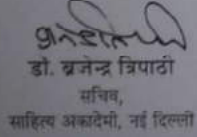 डॉ. ब्रजेन्द्र त्रिपाठी
सचिव,
साहित्य अकादेमी, नई दिल्ली